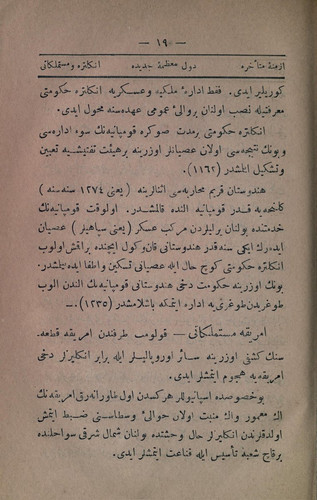 — ١٩ —
ازمنهٔ متأخره دول معظمهٔ جدیده انكلتره ومستملكاتی
كوریلیر ایدی. فقط ادارهٔ ملكیه وعسكریه انكلتره حكومتی
معرفتیله نصب اولنان بروالئ عمومی عهده‌سنه محول ایدی.
انكلتره حكومتی برمدت صوكره قومپانیه‌نك سوء اداره‌سی
وبونك نتیجه‌سی اولان عصیانلر اوزرینه برهیئت تفتیشیه تعیین
وتشكیل ایتلشدر (١١٦٢).
هندوستان قریم محاربه‌سی اثنالرینه (یعنی ١٢٧٤ سنه‌سنه)
كلنجه‌یه قدر قومپانیه النده قالمشدر. اولوقت قومپانیه‌نك
خدمتنده بولنان یرلیلردن مركب عسكر (یعنی سپاهیلر) عصیان
ایده‌رك ایكی سنه قدر هندوستانی قان وقول ایچنده براقمش اولوب
انكلتره حكومتی كوج حال ایله عصیانی تسكین واطفا ایده‌بیلشدر.
بونك اوزرینه حكومت دخی هندوستانی قومپانیه‌نك الندن الوب
طوغریدن طوغری‌یه اداره ایتمكه باشلامشدر (١٢٣٥).—
امریقه مستملكاتی — قولومب طرفندن امریقه قطعه‌.
سنك كشفی اوزرینه سائر اوروپالیلر ایله برابر انكلیزلر دخی
امریقه‌یه هجوم ایتمشلر ایدی.
بوخصوصده اسپانیولر هركسدن اول طاورانه‌رق امریقه‌نك
اك معمور واك منبت اولان حوالئ وسطاسنی ضبط ایتمش
اولدقلرندن انكلیزلر حال وحشتده بولنان شمال شرقی سواحلنده
برقاچ شعبه تأسیس ایله قناعت ایتمشلر ایدی.